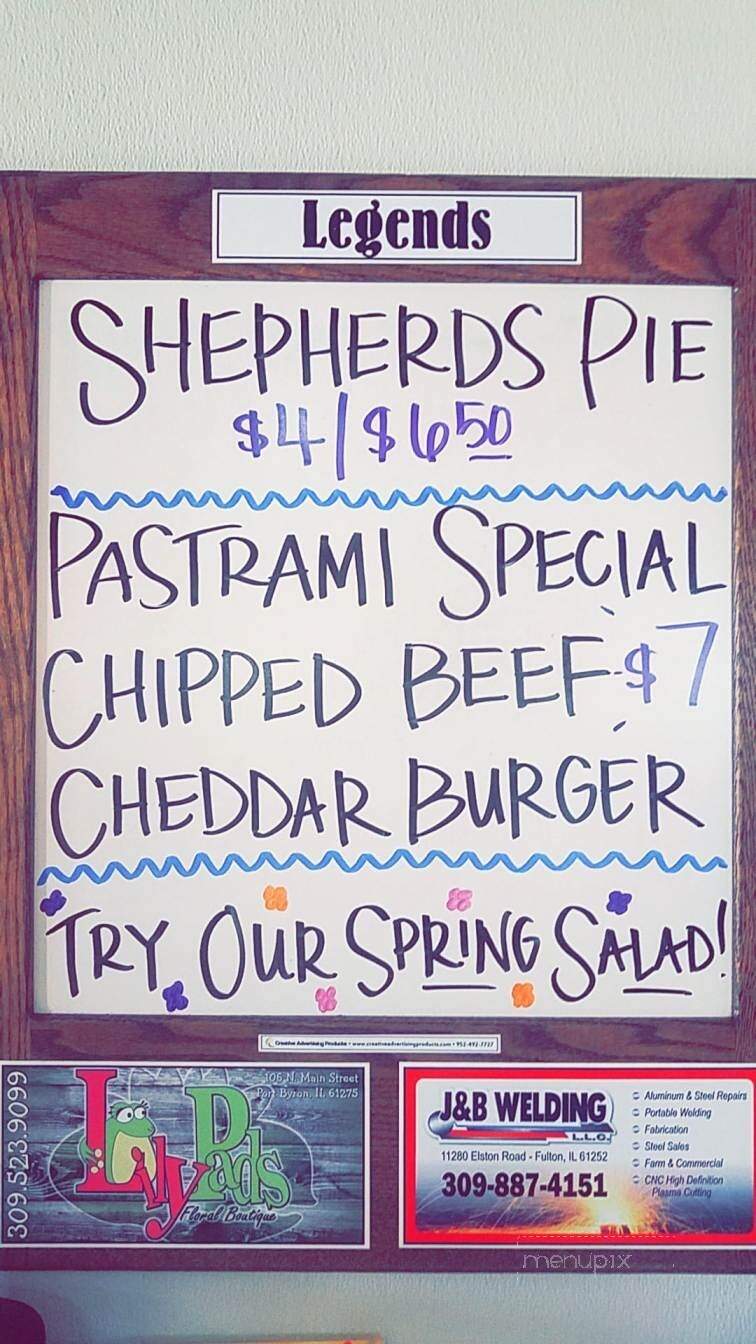 Legends
SHEPHERDS PIE
$4/$6 50
PASTRAMI SPECIAL
CHIPPED BEEF $7
CHEDDAR BURGER
TRY OUR SPRING SALAD!
Creative Advertising Products • www.creativeadvertisingproducts.com • 952-492-7727
309.523.9099
106 N. Main Street
Port Byron, IL 61275
Lily Pads
Floral Boutique
J&B WELDING
L.L.C.
11280 Elston Road - Fulton, IL 61252
309-887-4151
Aluminum & Steel Repairs
Portable Welding
Fabrication
Steel Sales
Farm & Commercial
CNC High Definition
Plasma Cutting
menupix